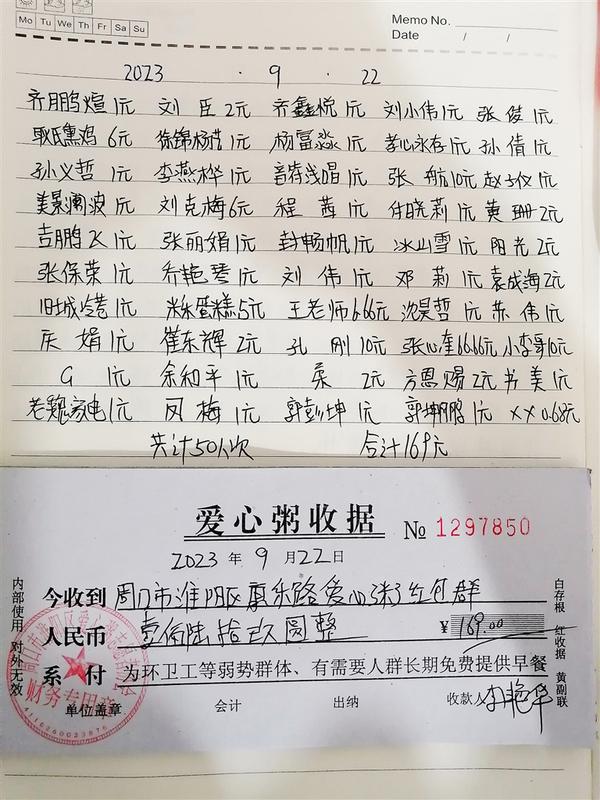 Mo Tu We Th Fr Sa Su
Memo No.
Date / /
2023 · 9 · 22
齐鹏煊1元 刘臣2元 齐鑫悦1元 刘小伟1元 张俊1元
耿氏熏鸡6元 徐锦杨浩1元 杨富淼1元 孝心永存1元 孙倩1元
孙义哲1元 李燕桦1元 音符浅唱1元 张航10元 赵子仪1元
美景澜波1元 刘克梅6元 程茜1元 任晓莉1元 黄珊2元
吉鹏飞1元 张丽娟1元 封畅帆1元 冰山雪1元 阳光2元
张保荣1元 乔艳琴1元 刘伟1元 邓莉1元 袁成海2元
旧城冷巷1元 米米蛋糕5元 王老师6.66元 沈昊哲1元 苏伟1元
庆娟1元 崔东辉2元 孔刚10元 张心奎66.66元 小李哥10元
G 1元 余和平1元 荣2元 方恩赐2元 书美1元
老魏家电1元 凤梅1元 郭彭坤1元 郭坤鹏1元 XX0.68元
共计50人次 合计169元
爱心粥收据 № 1297850
2023年9月22日
今收到 周口市淮阳区夏乐路爱心粥红包群
人民币 壹佰陆拾玖圆整 ¥169.00
系付 为环卫工等弱势群体、有需要人群长期免费提供早餐
单位盖章 会计 出纳 收款人 李艳华
内部使用 对外无效
白存根 红收据 黄副联
财务专用章